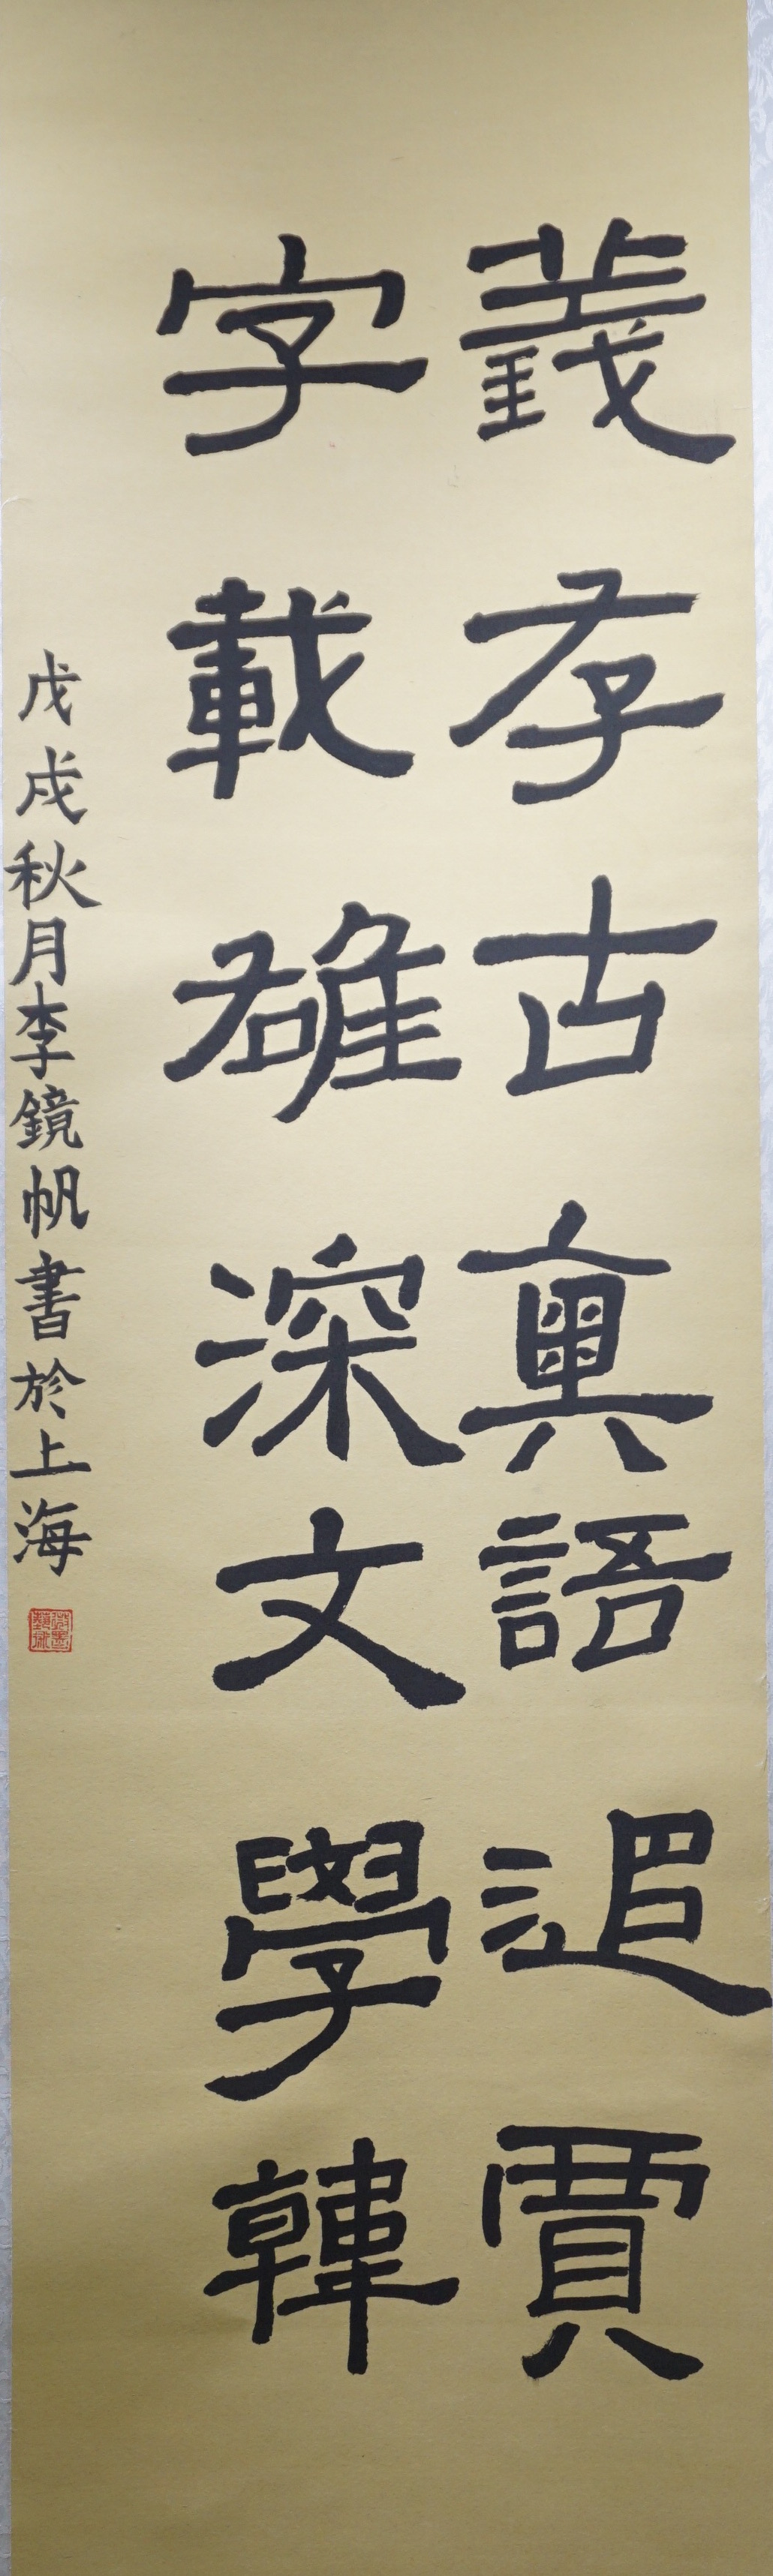 義存古真語追賈
字載雄深文學韓
戊戌秋月李鏡帆書於上海